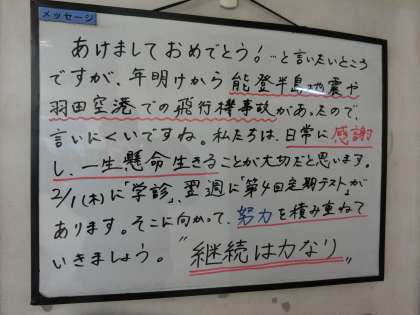 メッセージ
あけましておめでとう!…と言いたいところ
ですが、年明けから能登半島地震や
羽田空港での飛行機事故があったので、
言いにくいですね。私たちは、日常に感謝
し、一生懸命生きることが大切だと思います。
2/1(木)に「学診」、翌週に「第4回定期テスト」が
あります。そこに向かって、努力を積み重ねて
いきましょう。"継続は力なり"